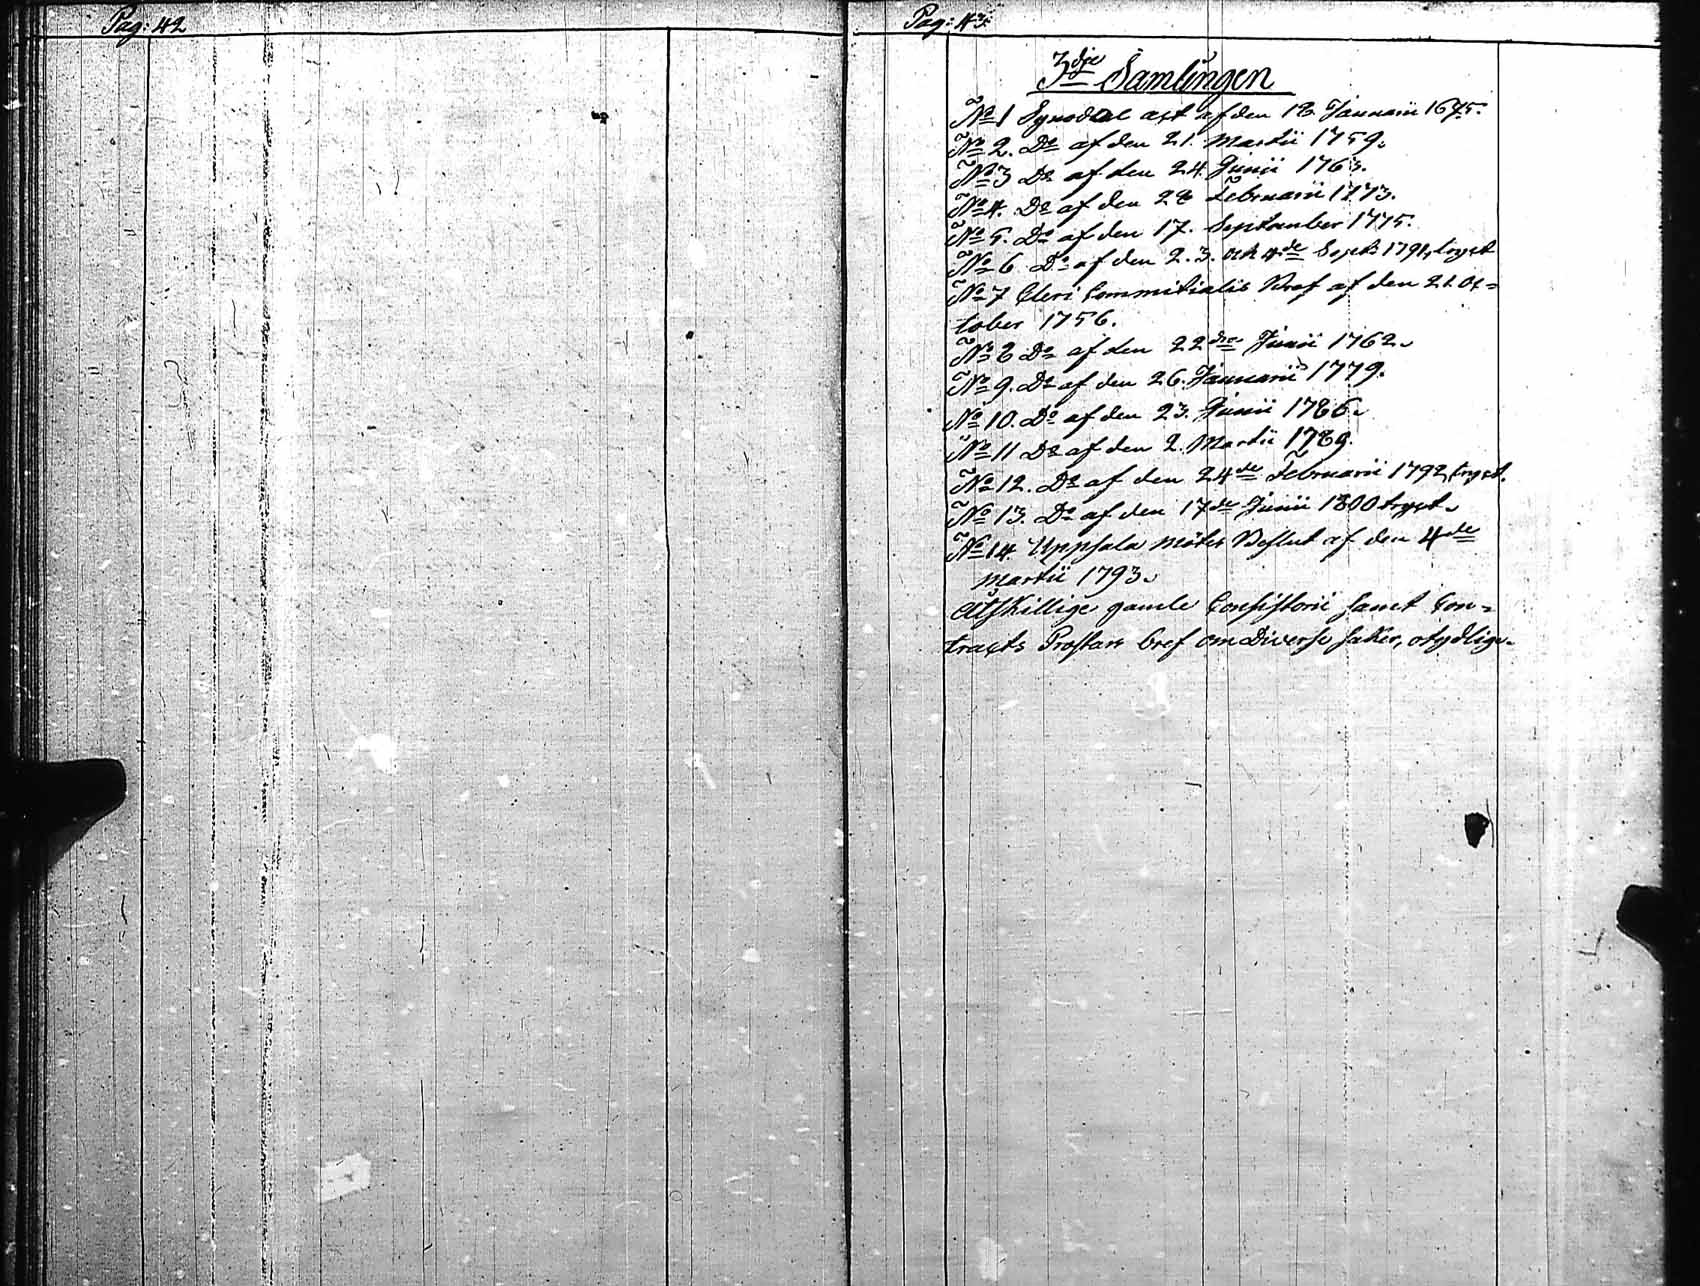 Pag: 42
Pag: 43.
3dje Samlingen
No 1 Synodal act af den 18. Januarii 1675.
No 2. Do af den 21. Martii 1759.
No 3 Do af den 24. Junii 1763.
No 4. Do af den 28 Februarii 1773.
No 5. Do af den 17. September 1775.
No 6. Do af den 2. 3. och 4de Sept. 1791, tryct
No 7 Cleri Commitialis Bref af den 21. Oc=
tober 1756.
No 8 Do af den 22dra Junii 1762.
No 9. Do af den 26. Januarii 1779.
No 10. Do af den 23. Junii 1786.
No 11 Do af den 2. Martii 1789.
No 12. Do af den 24de Februarii 1792, tryct.
No 13. Do af den 17de Junii 1800 tryct.
No 14. Uppsala Mötes Beslut af den 4de
Martii 1793.
Åtskillige gamle Consistorii samt Con=
tracts Prostars bref om Diverse saker, otydlige.